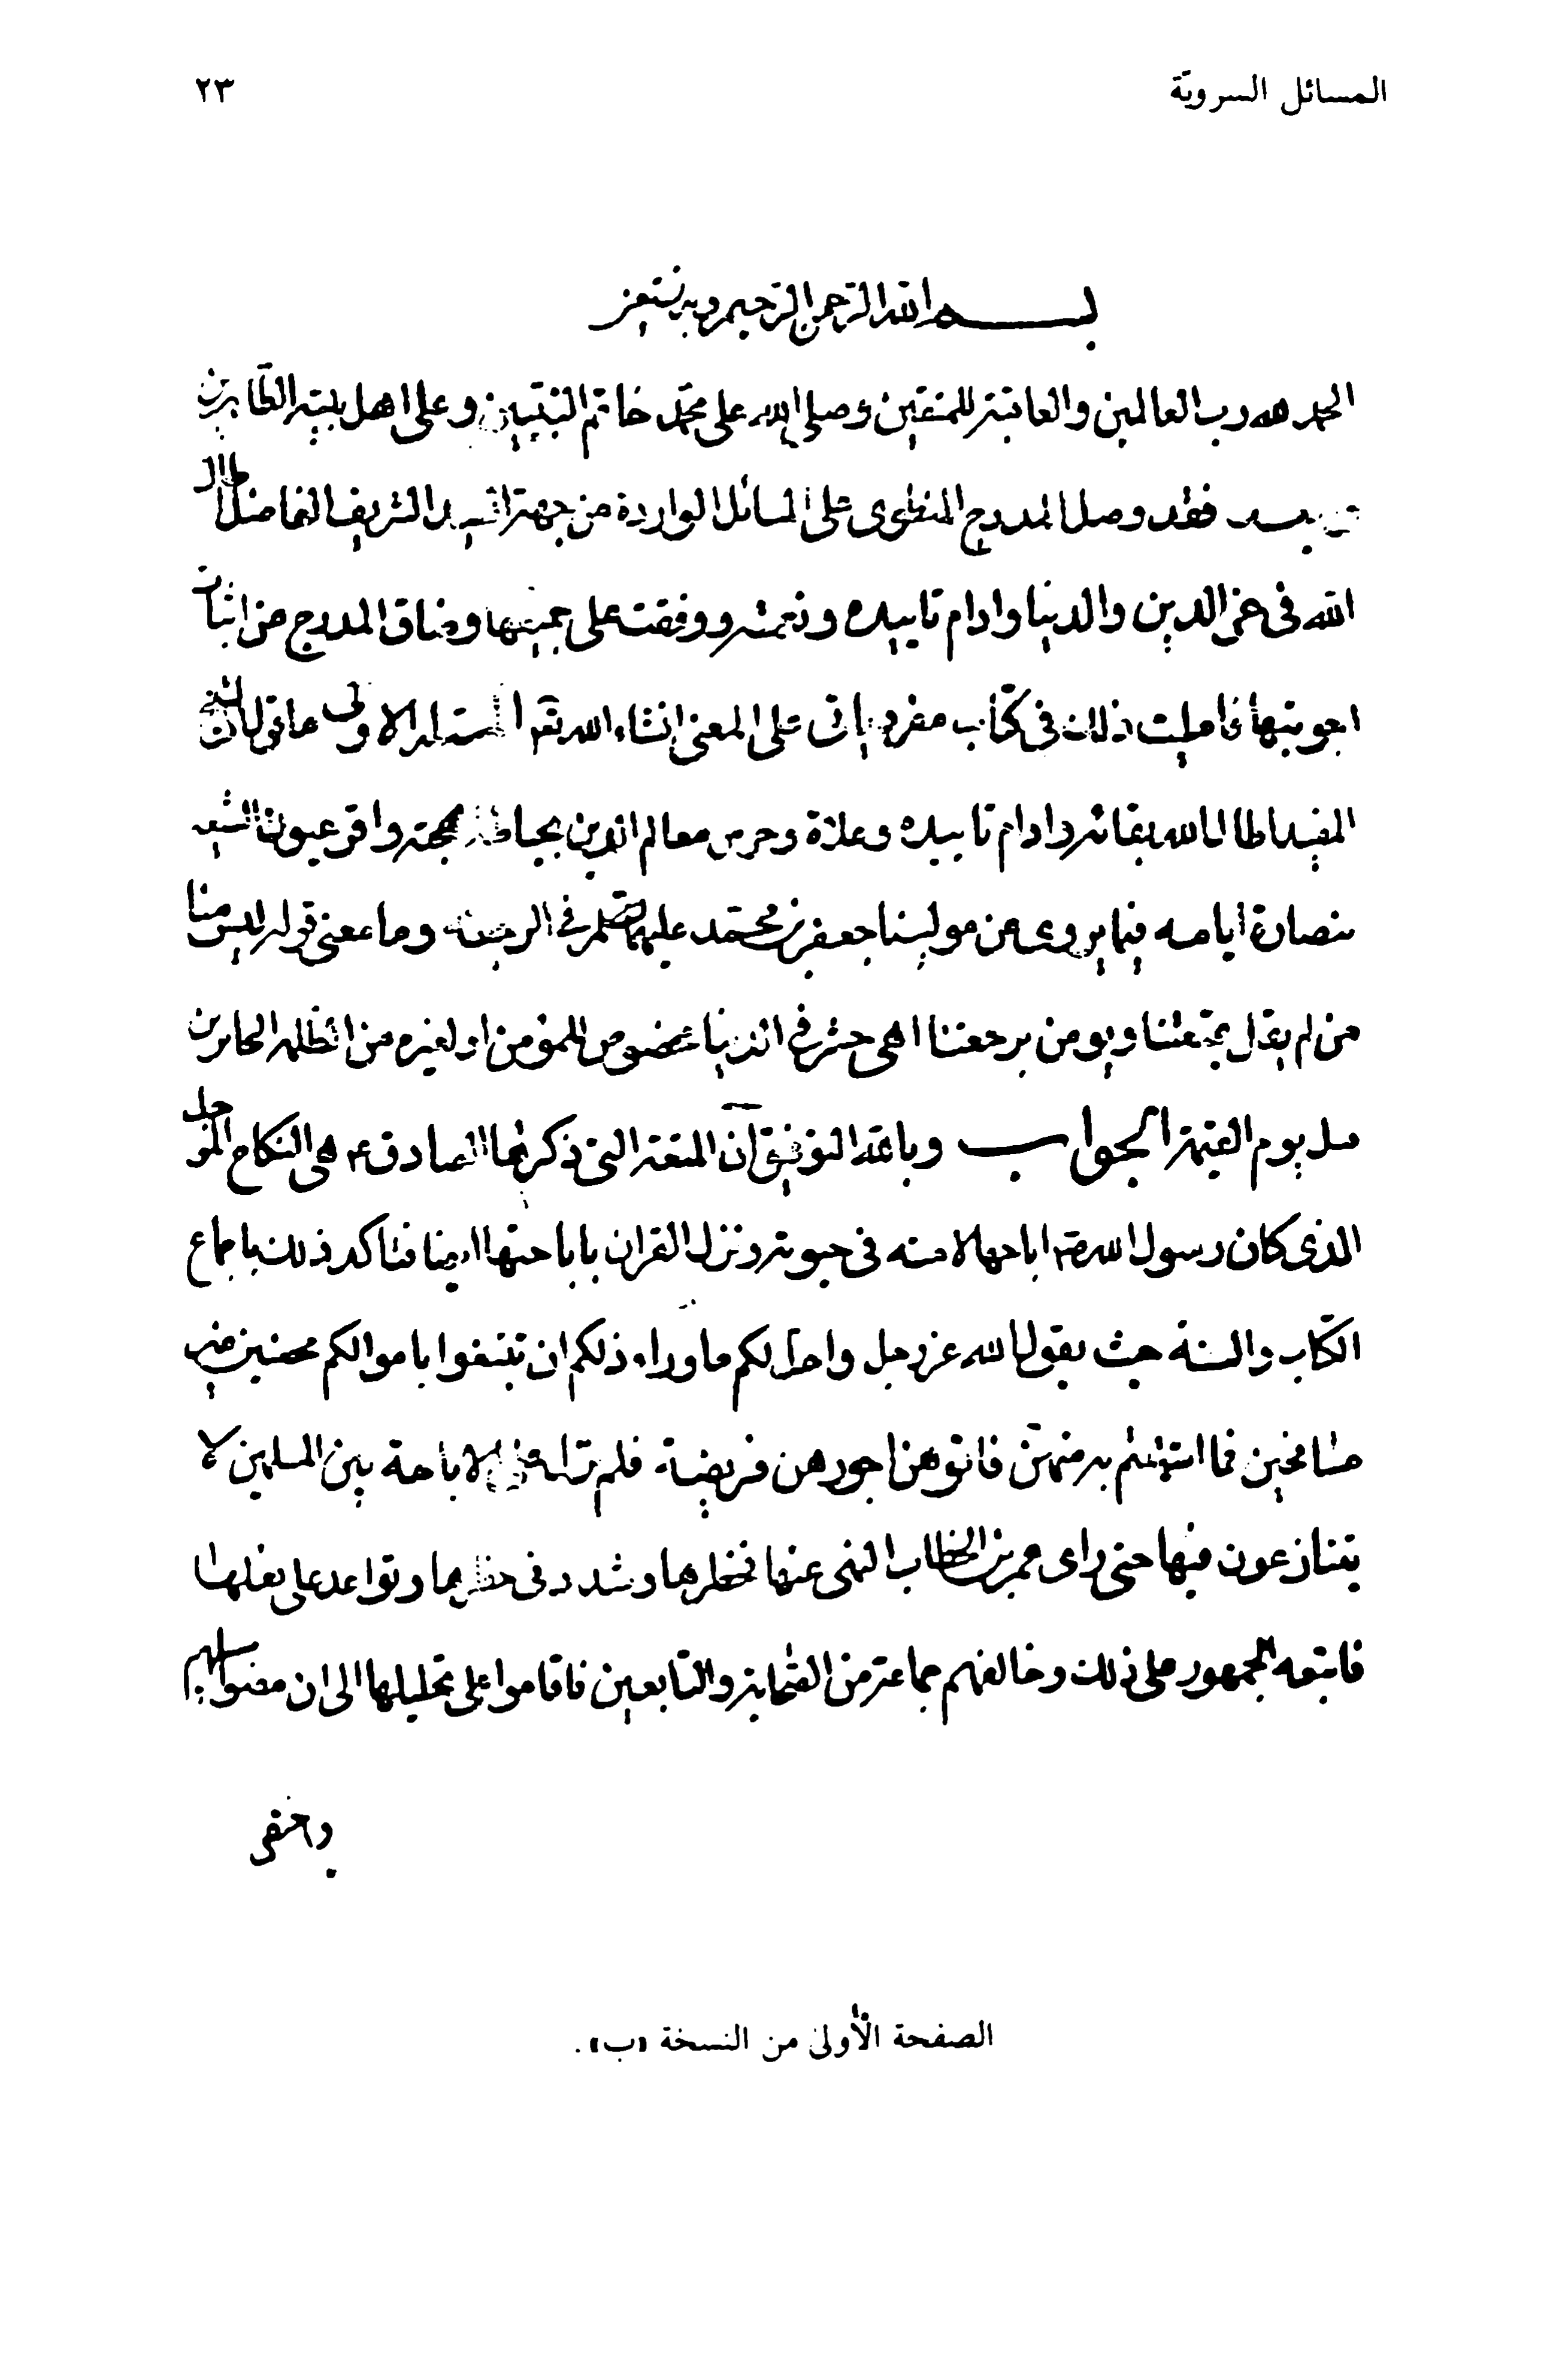 المسائل السرويّة ٢٣
بسم الله الرحمن الرحيم وبه نستعين
الحمد لله رب العالمين والعاقبة للمتقين وصلى الله على محمّد خاتم النبيّين وعلى اهل بيته الطّاهرين
وبعد فقد وصل المدرج المنطوى على المسائل الواردة من جهة السيد الشريف الفاضل اطال
الله فى عز الدين والدنيا وادام تاييده ونعمته ووقفت على جميعها وضاق المدرج من اثبات
اجوبتها فامليت ذلك فى كتاب مفرد ياتى على المعنى انشاء الله تعم المسئلة الاولى ما قول الشيخ
المفيد اطال الله بقائه وادام تاييده وعلاه وحرس معالم الدين بحياطة مهجته واقر عيون الشيعه
بنضارة ايامه فيما يروى عن مولينا جعفر بن محمّد عليهما السلم فى الرجعة وما معنى قوله ليس منا
من لم يقل بمتعتنا ويومن برجعتنا اهى حشر فى الدنيا مخصوص للمؤمن او لغيره من الظلمة الجايرين
قبل يوم القيمة الجواب وبالله التوفيق انّ المتعة التى ذكرها الصادق ع هى النكاح المؤجل
الذى كان رسول الله ص اباحها لامته فى حيوته ونزل القران باباحتها ايضا فتاكد ذلك باجماع
الكتاب والسنة حيث يقول الله عز وجل واحل لكم ما وراء ذلكم ان تبتغوا باموالكم محصنين غير
مسافحين فما استمتعتم به منهنّ فاتوهن اجورهن فريضة فلم تزل على الاباحة بين المسلمين لا
يتنازعون فيها حتى راى عمر بن الخطاب النهى عنها فحظرها وشدد فى حظرها وتواعد على فعلها
فاتبعه الجمهور على ذلك وخالفهم جماعة من الصّحابة والتابعين فاقاموا على تحليلها الى ان مضوا لسبيلهم
واختص
الصفحة الأولىٰ من النسخة «ب».